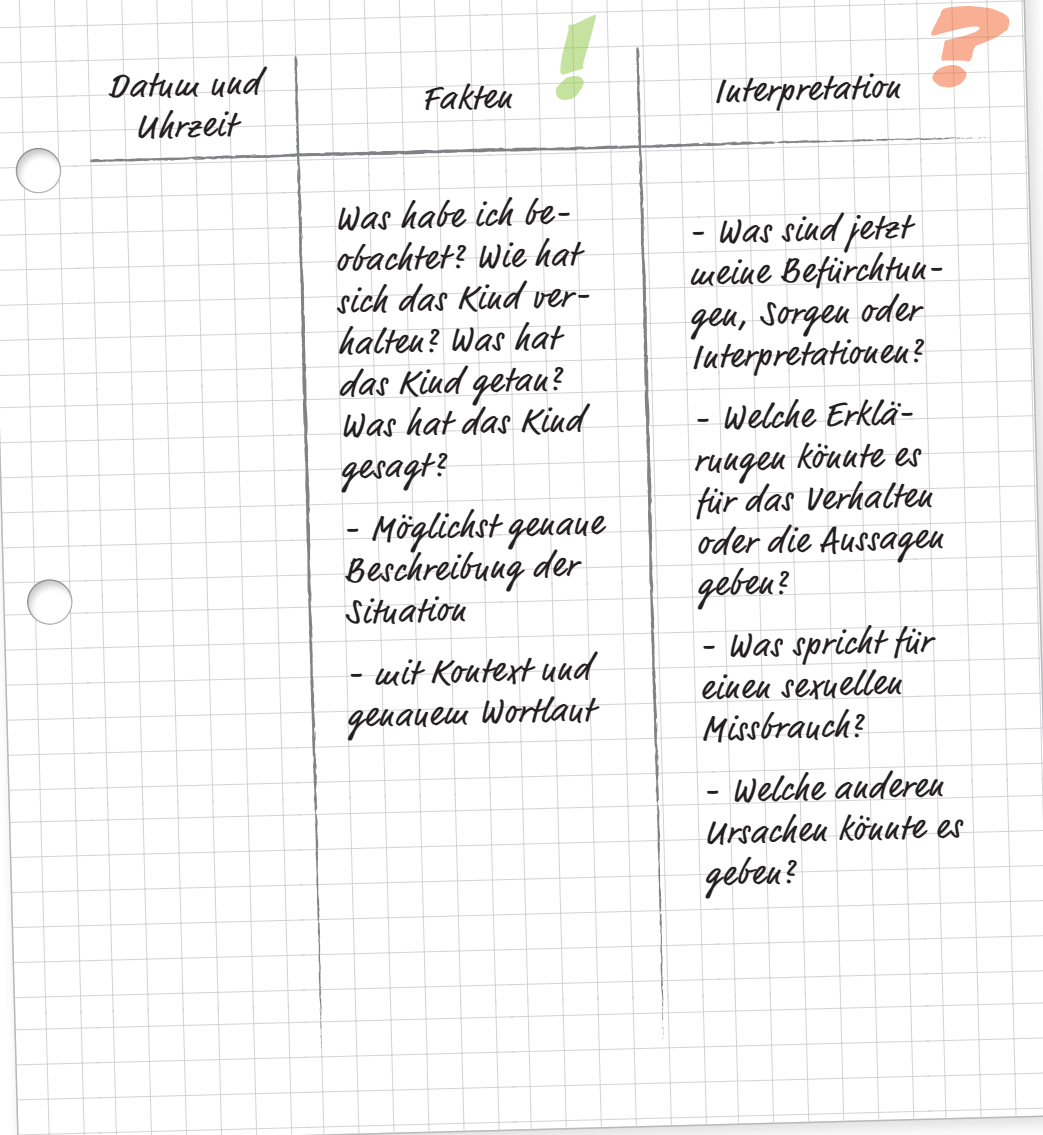 Datum und
Uhrzeit
Fakten
!
Interpretation
?
Was habe ich be-
obachtet? Wie hat
sich das Kind ver-
halten? Was hat
das Kind getan?
Was hat das Kind
gesagt?
- Möglichst genaue
Beschreibung der
Situation
- mit Kontext und
genauem Wortlaut
- Was sind jetzt
meine Befürchtun-
gen, Sorgen oder
Interpretationen?
- Welche Erklä-
rungen könnte es
für das Verhalten
oder die Aussagen
geben?
- Was spricht für
einen sexuellen
Missbrauch?
- Welche anderen
Ursachen könnte es
geben?